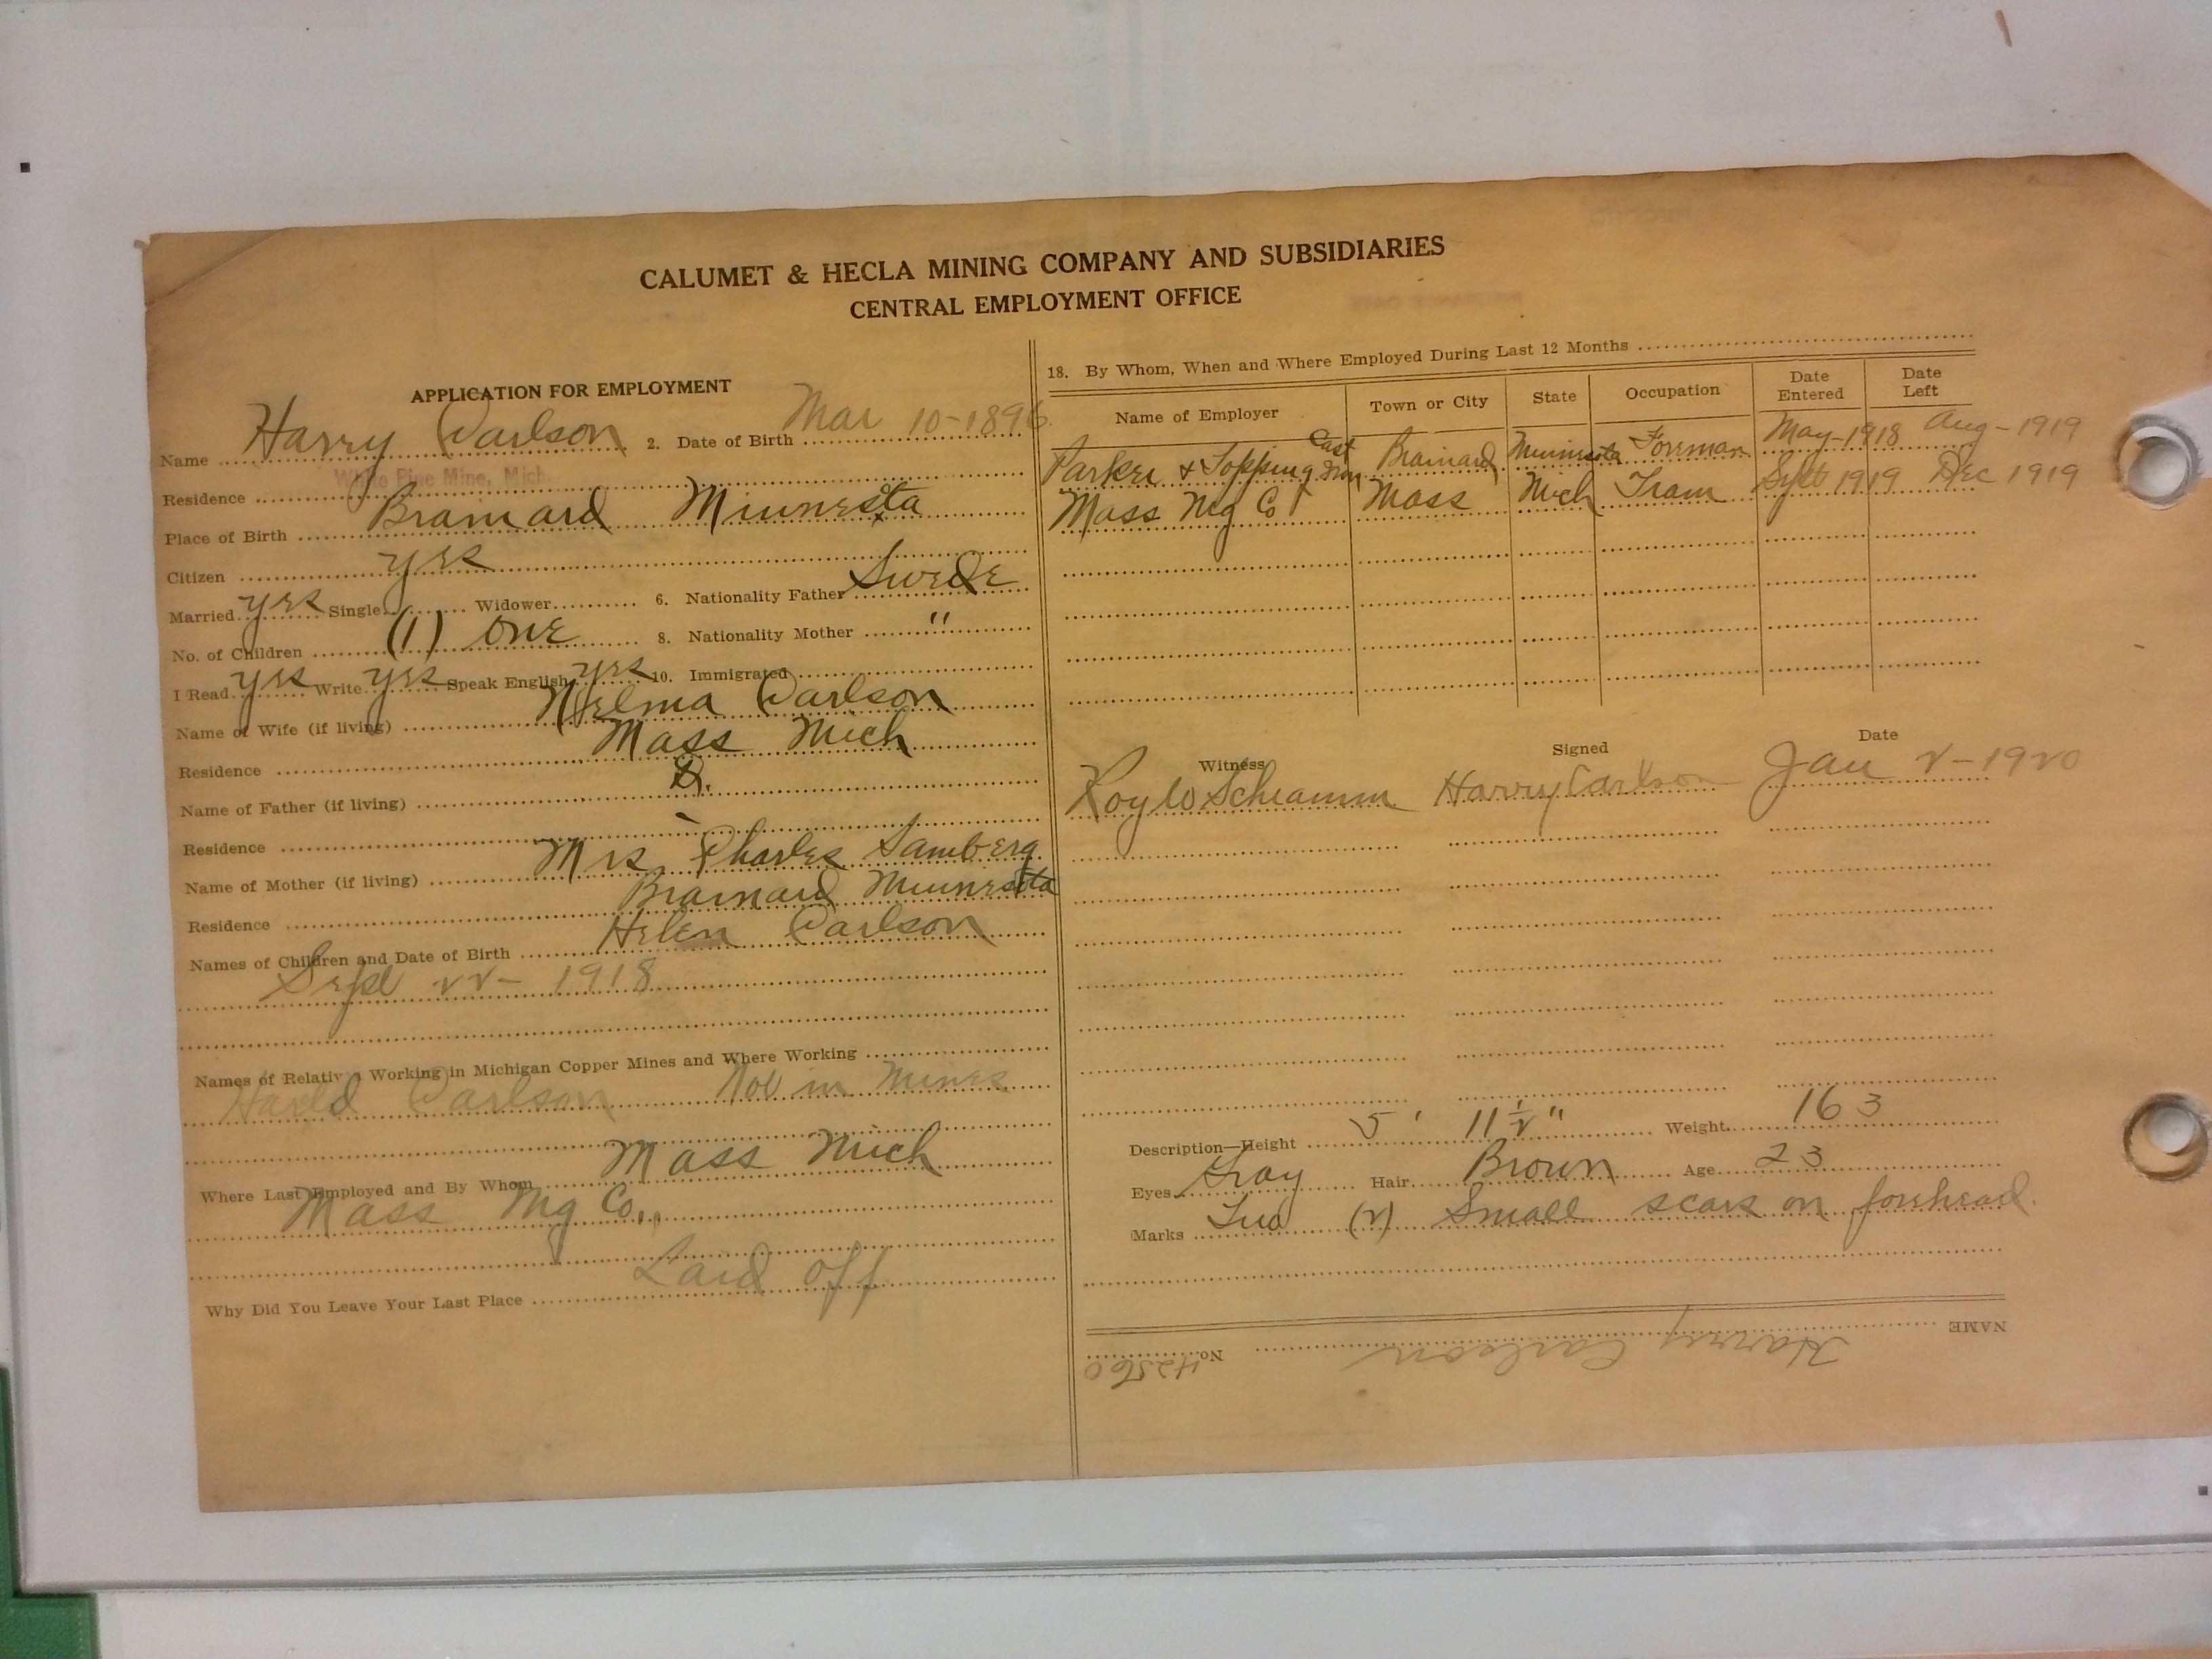 CALUMET & HECLA MINING COMPANY AND SUBSIDIARIES
CENTRAL EMPLOYMENT OFFICE
APPLICATION FOR EMPLOYMENT
Name Harry Carlson 2. Date of Birth Mar 10-1896
Residence White Pine Mine, Mich.
Place of Birth Brainard Minnesota
Citizen yes
Married yes Single Widower 6. Nationality Father Swede
No. of Children (1) one 8. Nationality Mother "
I Read yes Write yes Speak English yes 10. Immigrated
Name of Wife (if living) Carlson
Residence Mass Mich
Name of Father (if living) D.
Residence -
Name of Mother (if living) Mrs. Charles Samberg
Residence Brainard Minnesota
Names of Children and Date of Birth Helen Carlson
Sept 22- 1918
Names of Relatives Working in Michigan Copper Mines and Where Working
Harold Carlson Not in Mines
Where Last Employed and By Whom Mass Mich
Mass Mg Co.
Why Did You Leave Your Last Place Laid off
18. By Whom, When and Where Employed During Last 12 Months
Name of Employer Town or City State Occupation Date Entered Date Left
Parker & Topping Cast Iron Brainard Minnesota Foreman May-1918 Aug-1919
Mass Mg Co Mass Mich Tram Sept 1919 Dec 1919
Witness Signed Date
Roy W Schramm Harry Carlson Jan 2-1920
Description—Height 5' 11 1/2" Weight 163
Eyes Gray Hair Brown Age 23
Marks Two (2) small scars on forehead.
NAME Harry Carlson No. 42560